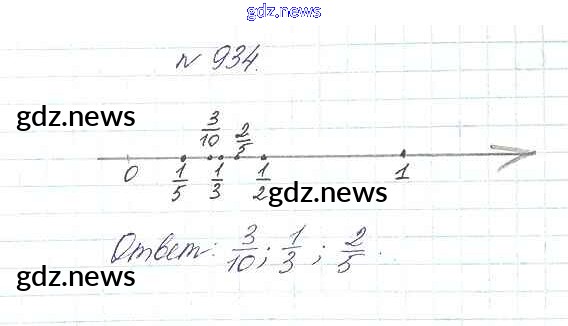 gdz.news
№ 934.
gdz.news
3/10 2/5
0 1/5 1/3 1/2 1
gdz.news
Ответ: 3/10; 1/3; 2/5.
gdz.news